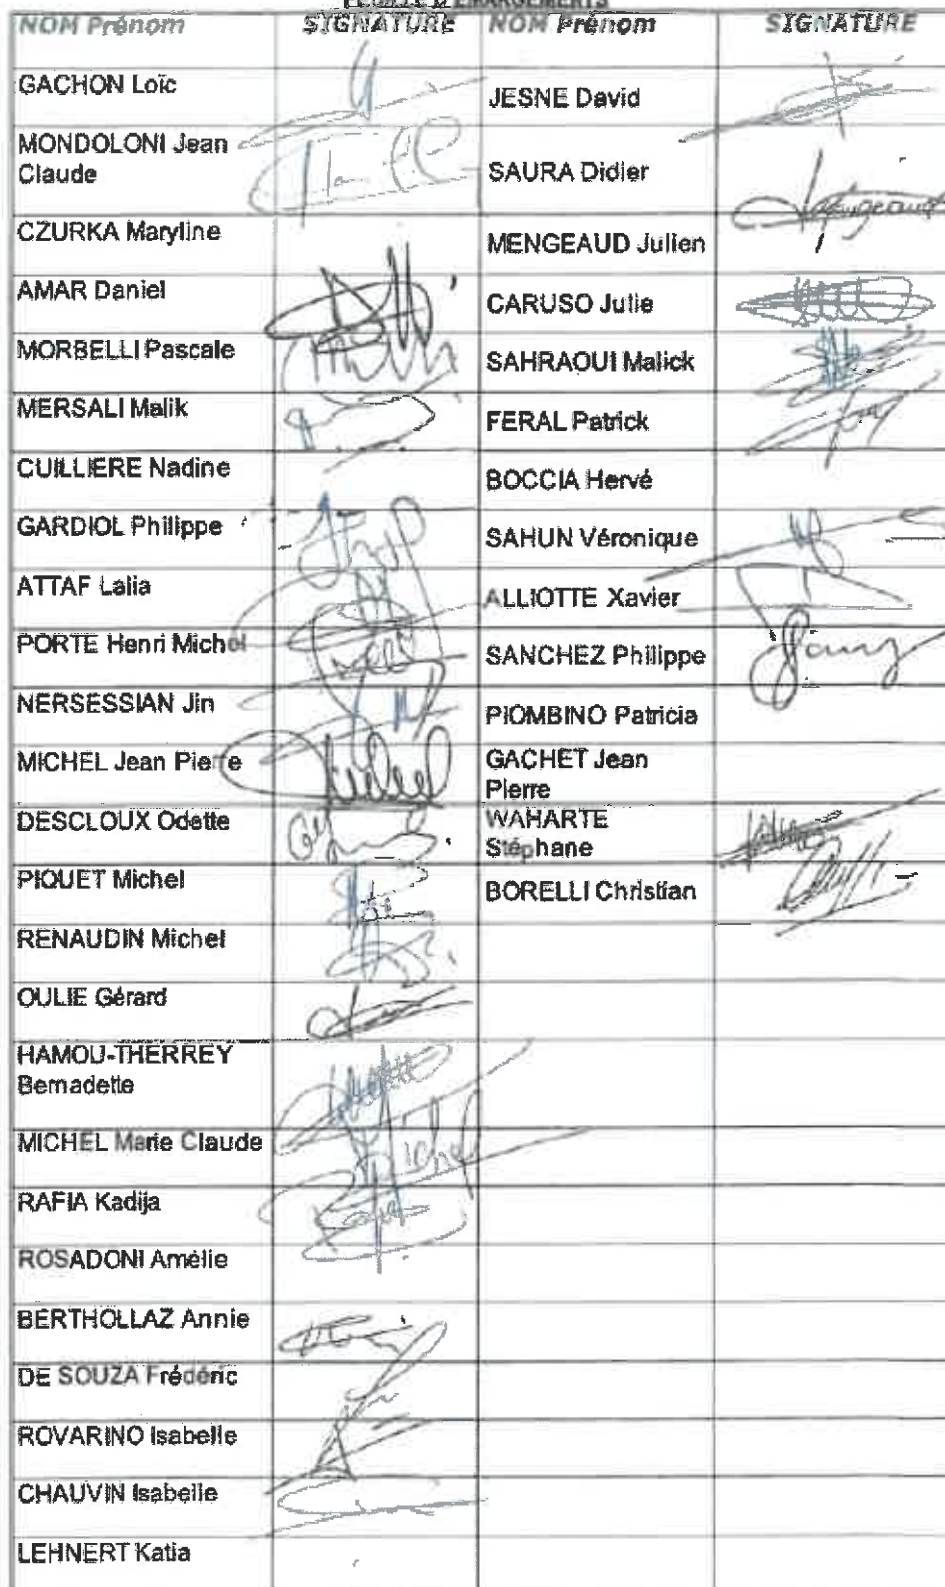 FEUILLE D'EMARGEMENTS
NOM Prénom SIGNATURE NOM Prénom SIGNATURE
GACHON Loïc
JESNE David
MONDOLONI Jean
Claude
SAURA Didier
CZURKA Maryline
MENGEAUD Julien
AMAR Daniel
CARUSO Julie
MORBELLI Pascale
SAHRAOUI Malick
MERSALI Malik
FERAL Patrick
CUILLIERE Nadine
BOCCIA Hervé
GARDIOL Philippe
SAHUN Véronique
ATTAF Lalia
ALLIOTTE Xavier
PORTE Henri Michel
SANCHEZ Philippe
NERSESSIAN Jin
PIOMBINO Patricia
MICHEL Jean Pierre
GACHET Jean
Pierre
DESCLOUX Odette
WAHARTE
Stéphane
PIQUET Michel
BORELLI Christian
RENAUDIN Michel
OULIE Gérard
HAMOU-THERREY
Bernadette
MICHEL Marie Claude
Michel
RAFIA Kadija
ROSADONI Amélie
BERTHOLLAZ Annie
DE SOUZA Frédéric
ROVARINO Isabelle
CHAUVIN Isabelle
LEHNERT Katia